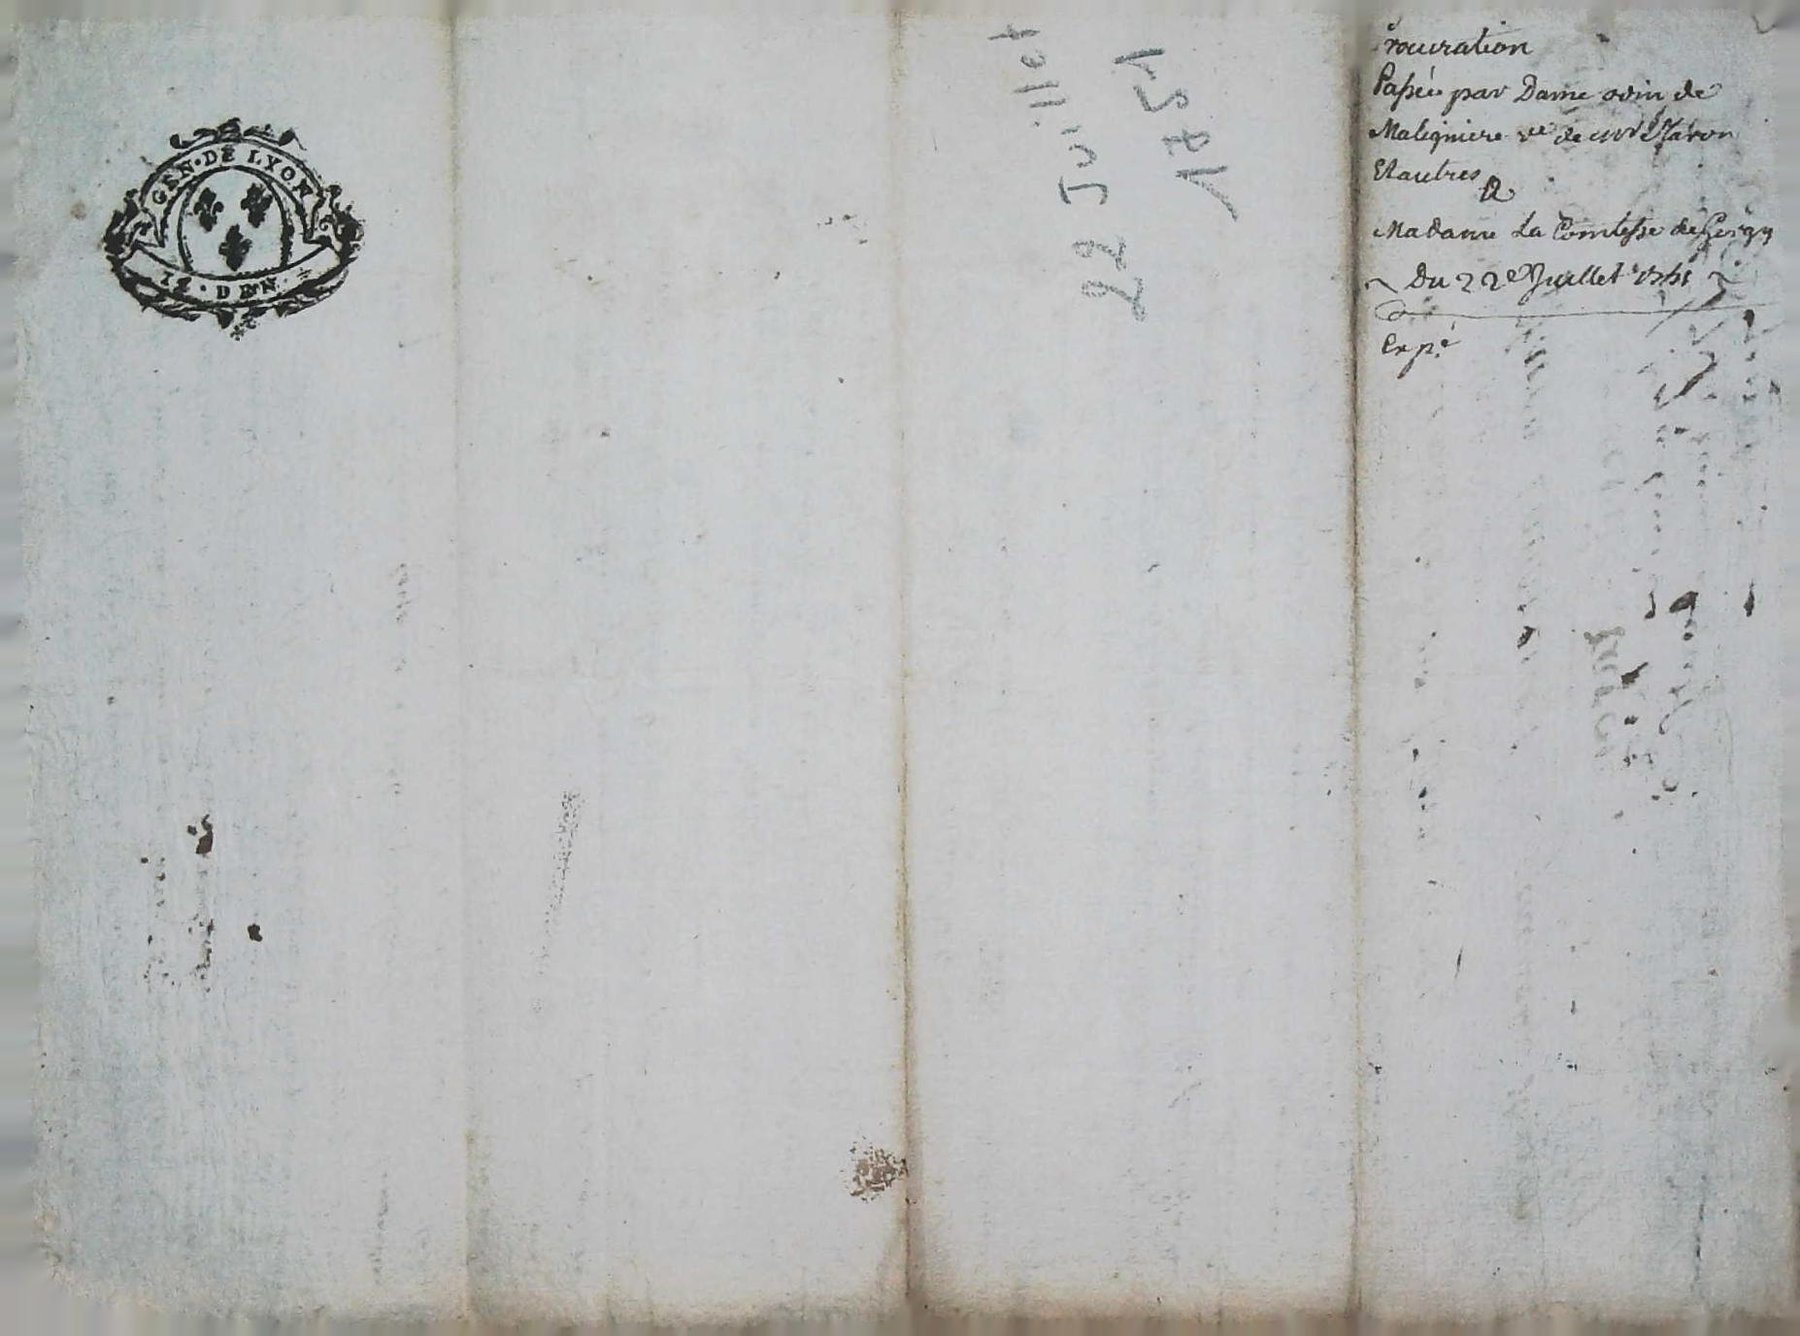 GEN·DE LYON
12·DEN
22 Juillet
1751
Procuration
Passée par Dame odin de
Maligniere ve de mr
Et autres
A
Madame La Comtesse de Gergy
Du 22e Juillet 1751
Expé